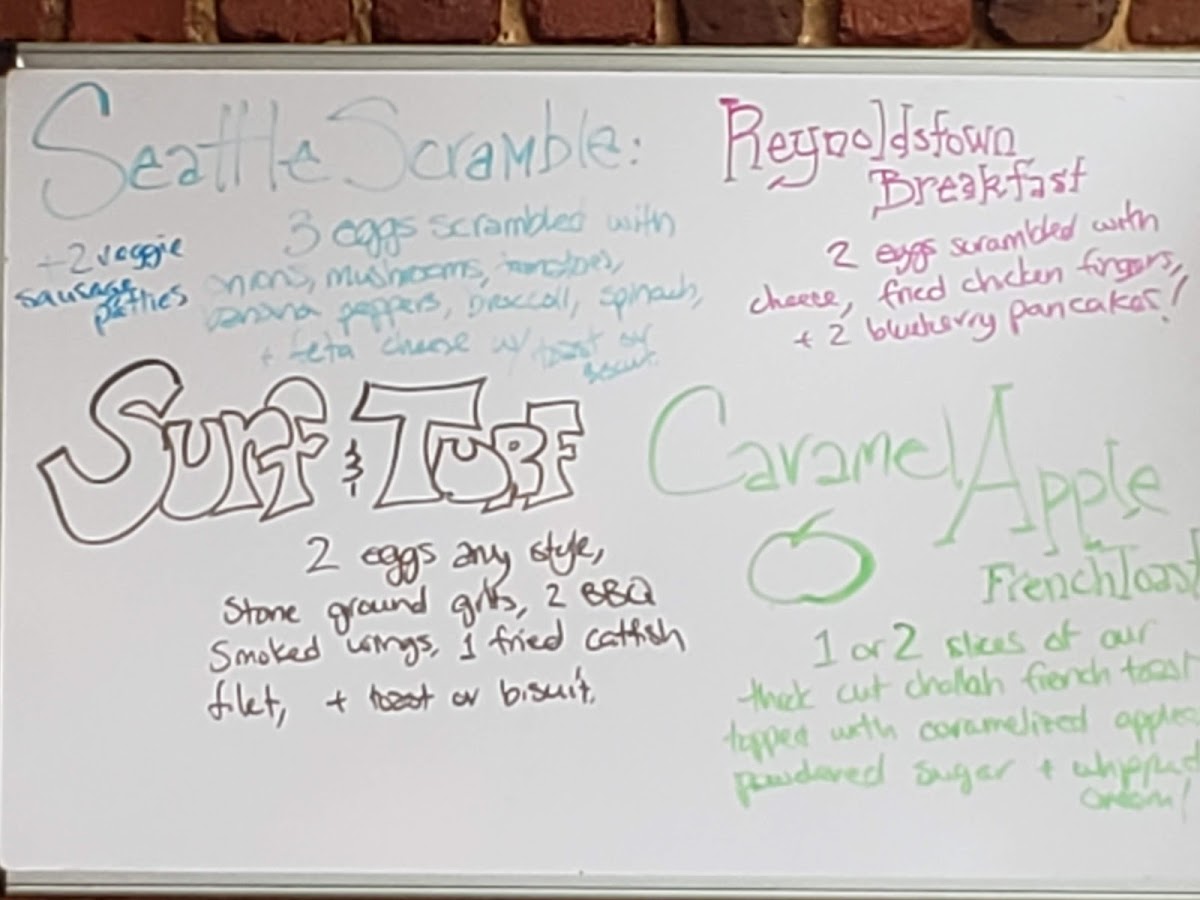 Seattle Scramble:
3 eggs scrambled with
onions, mushrooms, tomatoes,
banana peppers, broccoli, spinach,
+ feta cheese w/ toast or
biscuit.
+2 veggie
sausage
patties
Reynoldstown
Breakfast
2 eggs scrambled with
cheese, fried chicken fingers,
+ 2 blueberry pancakes!
Surf & Turf
2 eggs any style,
Stone ground grits, 2 BBQ
Smoked wings, 1 fried catfish
filet, + toast or biscuit.
Caramel Apple
French Toast
1 or 2 slices of our
thick cut challah french toast
topped with caramelized apples
powdered sugar + whipped
cream!